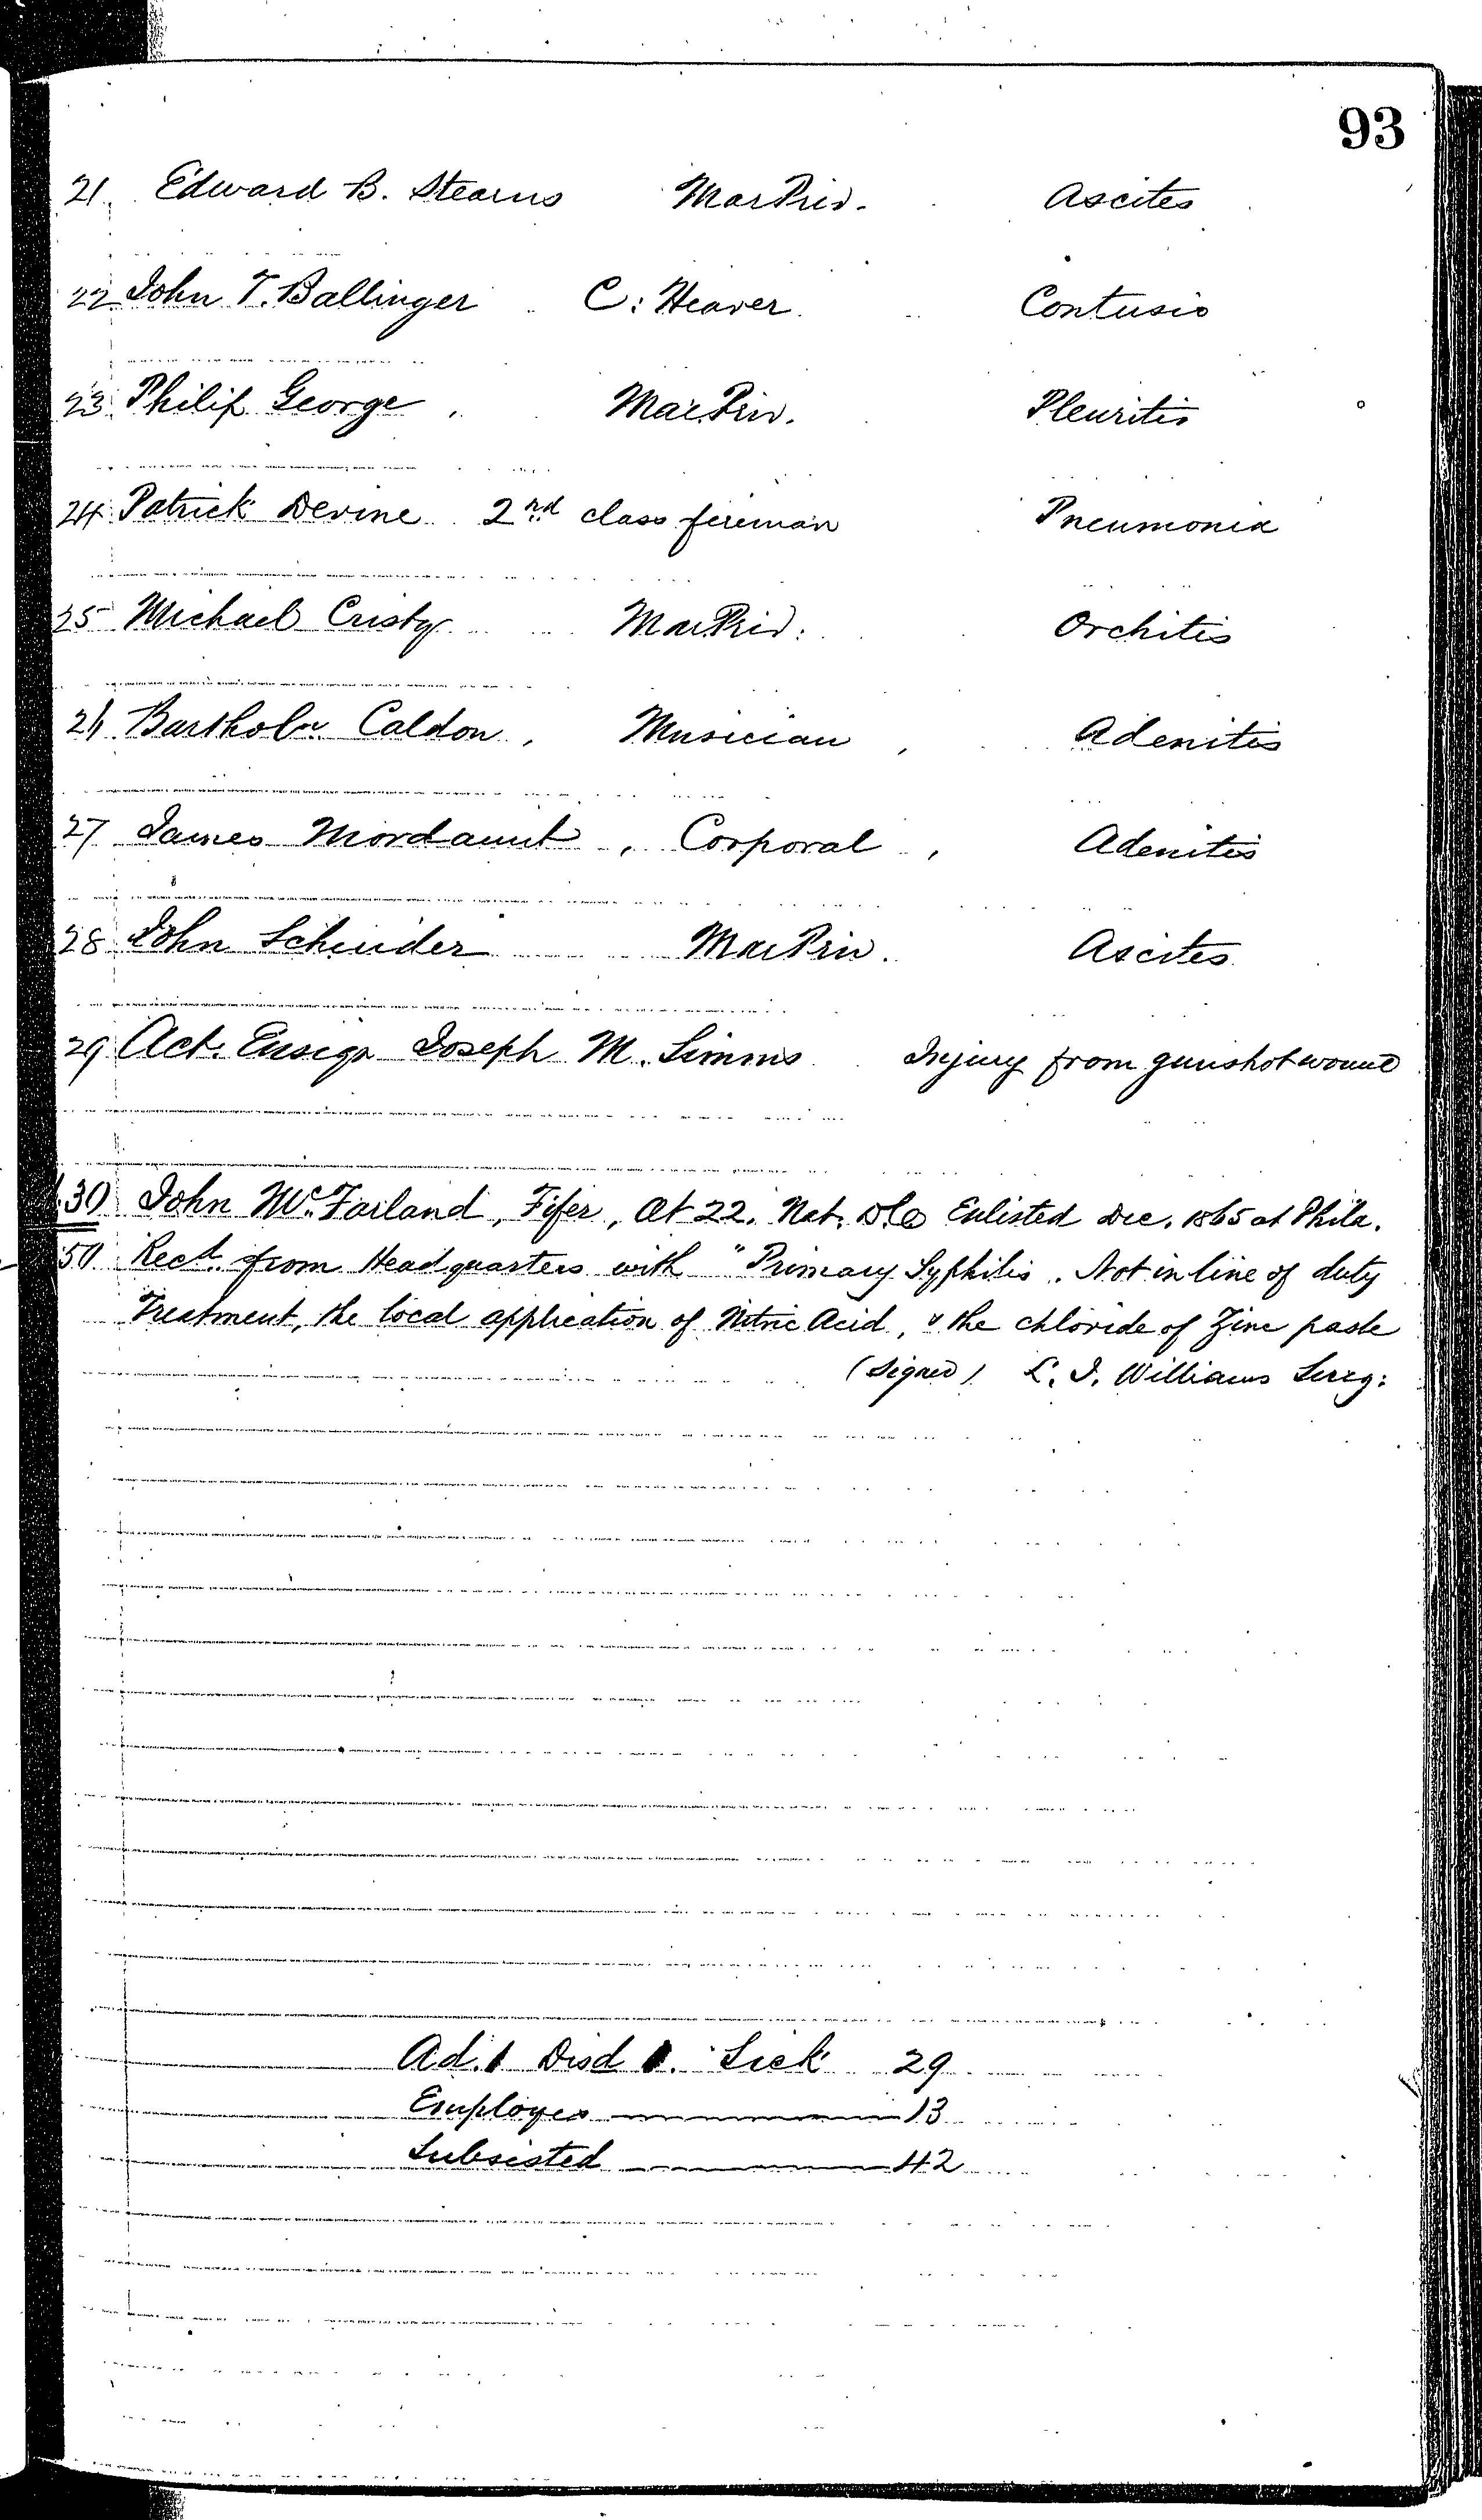 93
21. Edward B. Stearns Mar Priv. Ascites
22 John T. Ballinger C: Heaver. Contusio
23 Philip George, Mar. Priv. Pleuritis
24 Patrick Devine 2nd class fireman Pneumonia
25 Michael Cristy Mar Priv: Orchitis
26 Bartholw Caldon, Musician, Adenitis
27 James Mordaunt, Corporal, Adenitis
28 John Schnider Mar Priv. Ascites
29 Act. Ensign Joseph M. Simms Injury from gunshot wound
30 John McFarland, Fifer, At 22. Nat. Enlisted Dec. 1865 at Phila.
50 Recd. from Headquarters with "Primary Syphilis. Not in line of duty
Treatment, the local application of Nitric Acid, & the chloride of Zinc paste
(Signed) L. J. Williams Surg:
Ad. 1 Disd 1. Sick 29
Employes 13
Subsisted 42